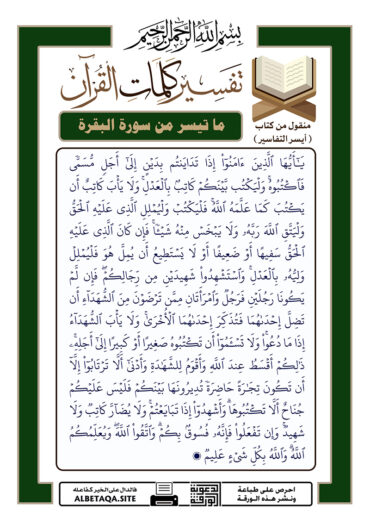 بِسْمِ اللَّهِ الرَّحْمَٰنِ الرَّحِيمِ
تفسير كلمات القرآن
ما تيسر من سورة البقرة
منقول من كتاب
( أيسر التفاسير )
يَـٰٓأَيُّهَا ٱلَّذِينَ ءَامَنُوٓا۟ إِذَا تَدَايَنتُم بِدَيْنٍ إِلَىٰٓ أَجَلٍ مُّسَمًّى
فَٱكْتُبُوهُ ۚ وَلْيَكْتُب بَّيْنَكُمْ كَاتِبٌۢ بِٱلْعَدْلِ ۚ وَلَا يَأْبَ كَاتِبٌ أَن
يَكْتُبَ كَمَا عَلَّمَهُ ٱللَّهُ ۚ فَلْيَكْتُبْ وَلْيُمْلِلِ ٱلَّذِى عَلَيْهِ ٱلْحَقُّ
وَلْيَتَّقِ ٱللَّهَ رَبَّهُۥ وَلَا يَبْخَسْ مِنْهُ شَيْـًٔا ۚ فَإِن كَانَ ٱلَّذِى عَلَيْهِ
ٱلْحَقُّ سَفِيهًا أَوْ ضَعِيفًا أَوْ لَا يَسْتَطِيعُ أَن يُمِلَّ هُوَ فَلْيُمْلِلْ
وَلِيُّهُۥ بِٱلْعَدْلِ ۚ وَٱسْتَشْهِدُوا۟ شَهِيدَيْنِ مِن رِّجَالِكُمْ ۖ فَإِن لَّمْ
يَكُونَا رَجُلَيْنِ فَرَجُلٌ وَٱمْرَأَتَانِ مِمَّن تَرْضَوْنَ مِنَ ٱلشُّهَدَآءِ أَن
تَضِلَّ إِحْدَىٰهُمَا فَتُذَكِّرَ إِحْدَىٰهُمَا ٱلْأُخْرَىٰ ۚ وَلَا يَأْبَ ٱلشُّهَدَآءُ
إِذَا مَا دُعُوا۟ ۚ وَلَا تَسْـَٔمُوٓا۟ أَن تَكْتُبُوهُ صَغِيرًا أَوْ كَبِيرًا إِلَىٰٓ أَجَلِهِۦ ۚ
ذَٰلِكُمْ أَقْسَطُ عِندَ ٱللَّهِ وَأَقْوَمُ لِلشَّهَـٰدَةِ وَأَدْنَىٰٓ أَلَّا تَرْتَابُوٓا۟ ۖ إِلَّآ
أَن تَكُونَ تِجَـٰرَةً حَاضِرَةً تُدِيرُونَهَا بَيْنَكُمْ فَلَيْسَ عَلَيْكُمْ
جُنَاحٌ أَلَّا تَكْتُبُوهَا ۗ وَأَشْهِدُوٓا۟ إِذَا تَبَايَعْتُمْ ۚ وَلَا يُضَآرَّ كَاتِبٌ وَلَا
شَهِيدٌ ۚ وَإِن تَفْعَلُوا۟ فَإِنَّهُۥ فُسُوقٌۢ بِكُمْ ۗ وَٱتَّقُوا۟ ٱللَّهَ ۖ وَيُعَلِّمُكُمُ
ٱللَّهُ ۗ وَٱللَّهُ بِكُلِّ شَىْءٍ عَلِيمٌ
احرص على طباعة
ونشر هذه الورقة
الورقة الدعوية
فالدال على الخير كفاعله
ALBETAQA.SITE